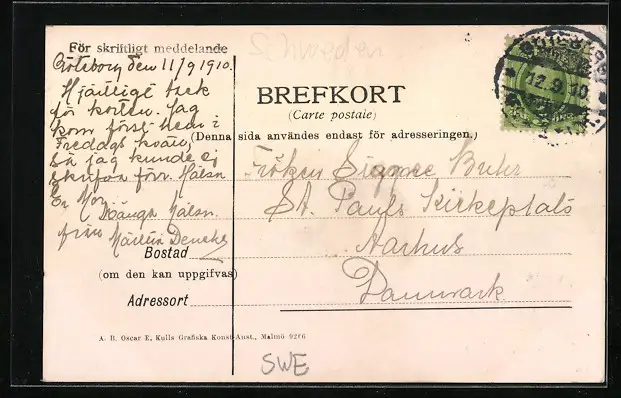 För skriftligt meddelande
Schweden
Göteborg den 11/9 1910.
Hjärtligt tack
för korten. Jag
kom först hem i
Fredags kväll,
så jag kunde ej
skrifva förr. Hälsn
BREFKORT
(Carte postale)
(Denna sida användes endast för adresseringen.)
Fröken Signe Buhr
St. Pauls Kirkeplads
Aarhus
Danmark
från Märtha
Bostad
(om den kan uppgifvas)
Adressort
A. B. Oscar E. Kulls Grafiska Konst-Anst., Malmö 9266
SWE
12.9.10